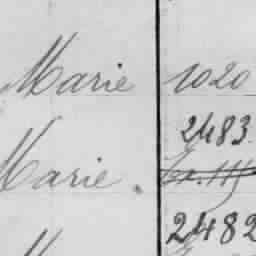 Marie 1020
2483
Marie.
2482